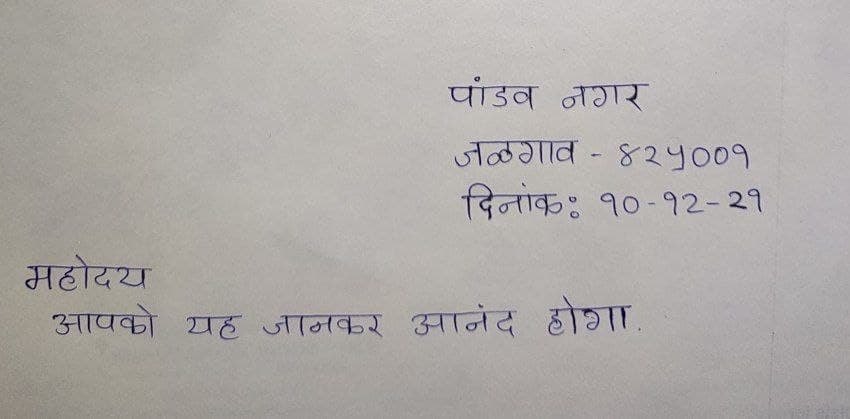 पांडव नगर
जळगाव - ४२५००१
दिनांक: १०-१२-२१
महोदय
आपको यह जानकर आनंद होगा.